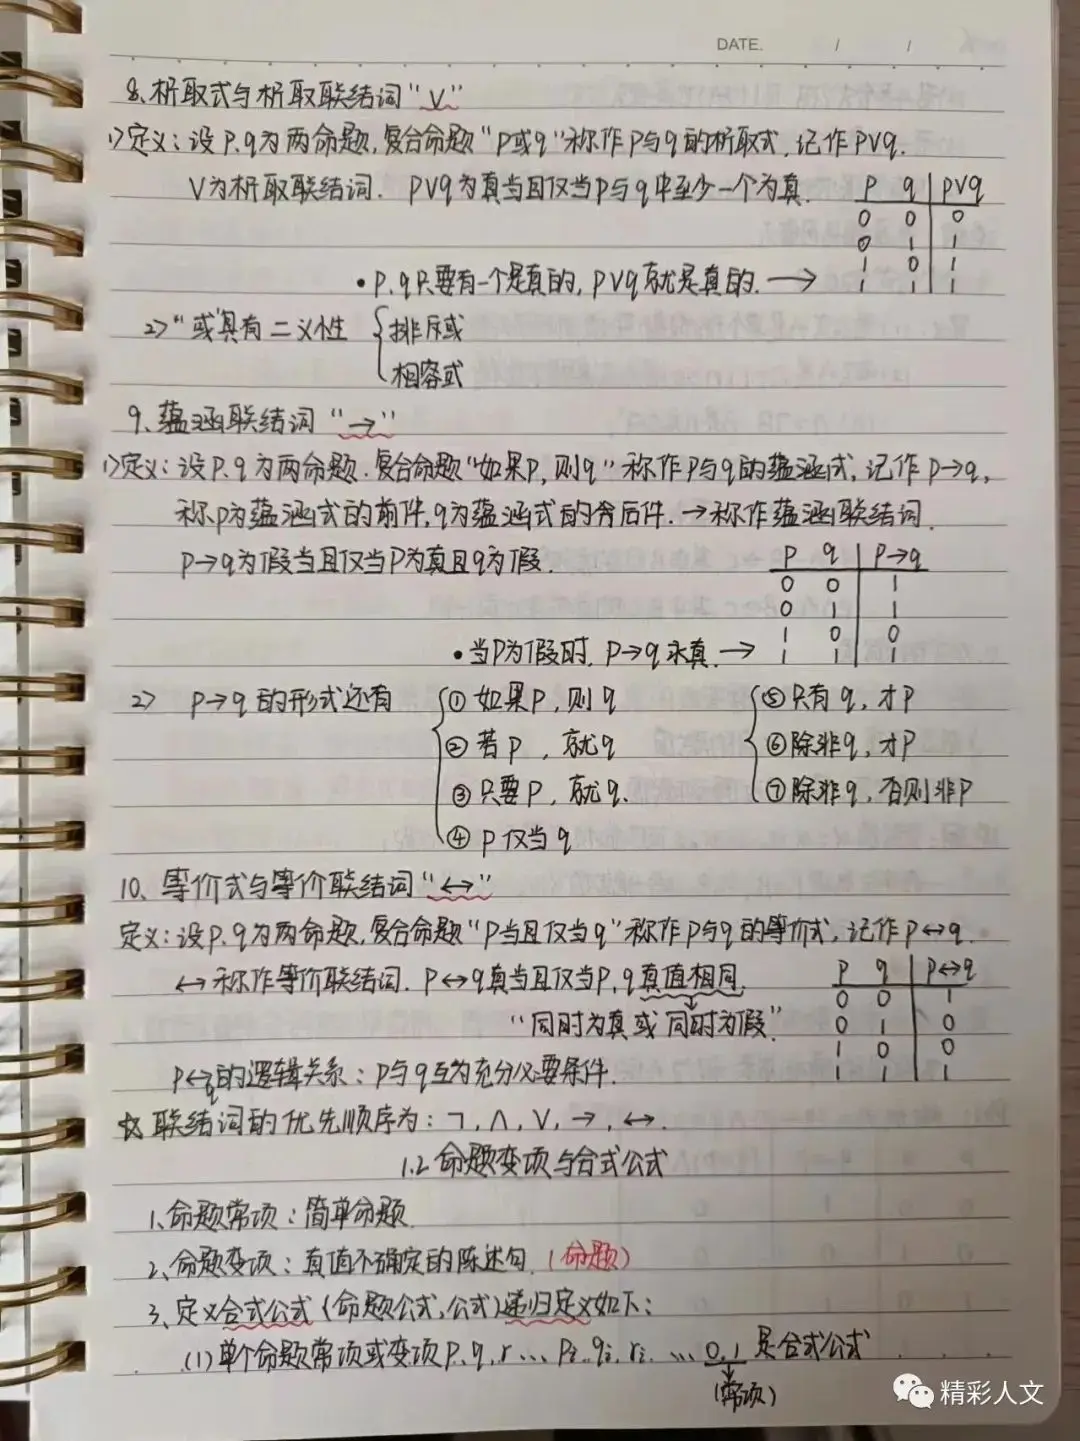 DATE. / /
8、析取式与析取联结词"∨"
1>定义：设P.q为两命题,复合命题"P或q"称作P与q的析取式.记作P∨q.
∨为析取联结词. P∨q为真当且仅当P与q中至少一个为真.
P q P∨q
0 0 0
0 1 1
1 0 1
1 1 1
•P.q只要有一个是真的,P∨q就是真的.→
2>"或"具有二义性 { 排斥或
相容或
9、蕴涵联结词"→"
1>定义：设P.q为两命题.复合命题"如果P,则q"称作P与q的蕴涵式,记作P→q,
称P为蕴涵式的前件,q为蕴涵式的后件.→称作蕴涵联结词.
P→q为假当且仅当P为真且q为假.
P q P→q
0 0 1
0 1 1
1 0 0
1 1 1
•当P为假时.P→q永真.→
2> P→q的形式还有 { ①如果P,则q { ⑤只有q,才P
②若P,就q ⑥除非q,才P
③只要P,就q. ⑦除非q,否则非P
④P仅当q
10、等价式与等价联结词"↔"
定义:设P.q为两命题,复合命题"P当且仅当q"称作P与q的等价式,记作P↔q.
↔称作等价联结词.P↔q真当且仅当P,q真值相同.
"同时为真或同时为假"
P q P↔q
0 0 1
0 1 0
1 0 0
1 1 1
P↔q的逻辑关系：P与q互为充分必要条件.
☆联结词的优先顺序为：¬,∧,∨,→,↔.
1.2命题变项与合式公式
1、命题常项：简单命题.
2、命题变项：真值不确定的陈述句.(命题)
3、定义合式公式(命题公式,公式)递归定义如下:
(1)单个命题常项或变项P.q,r...Pi..qi,ri....0,1是合式公式
(常项)
精彩人文